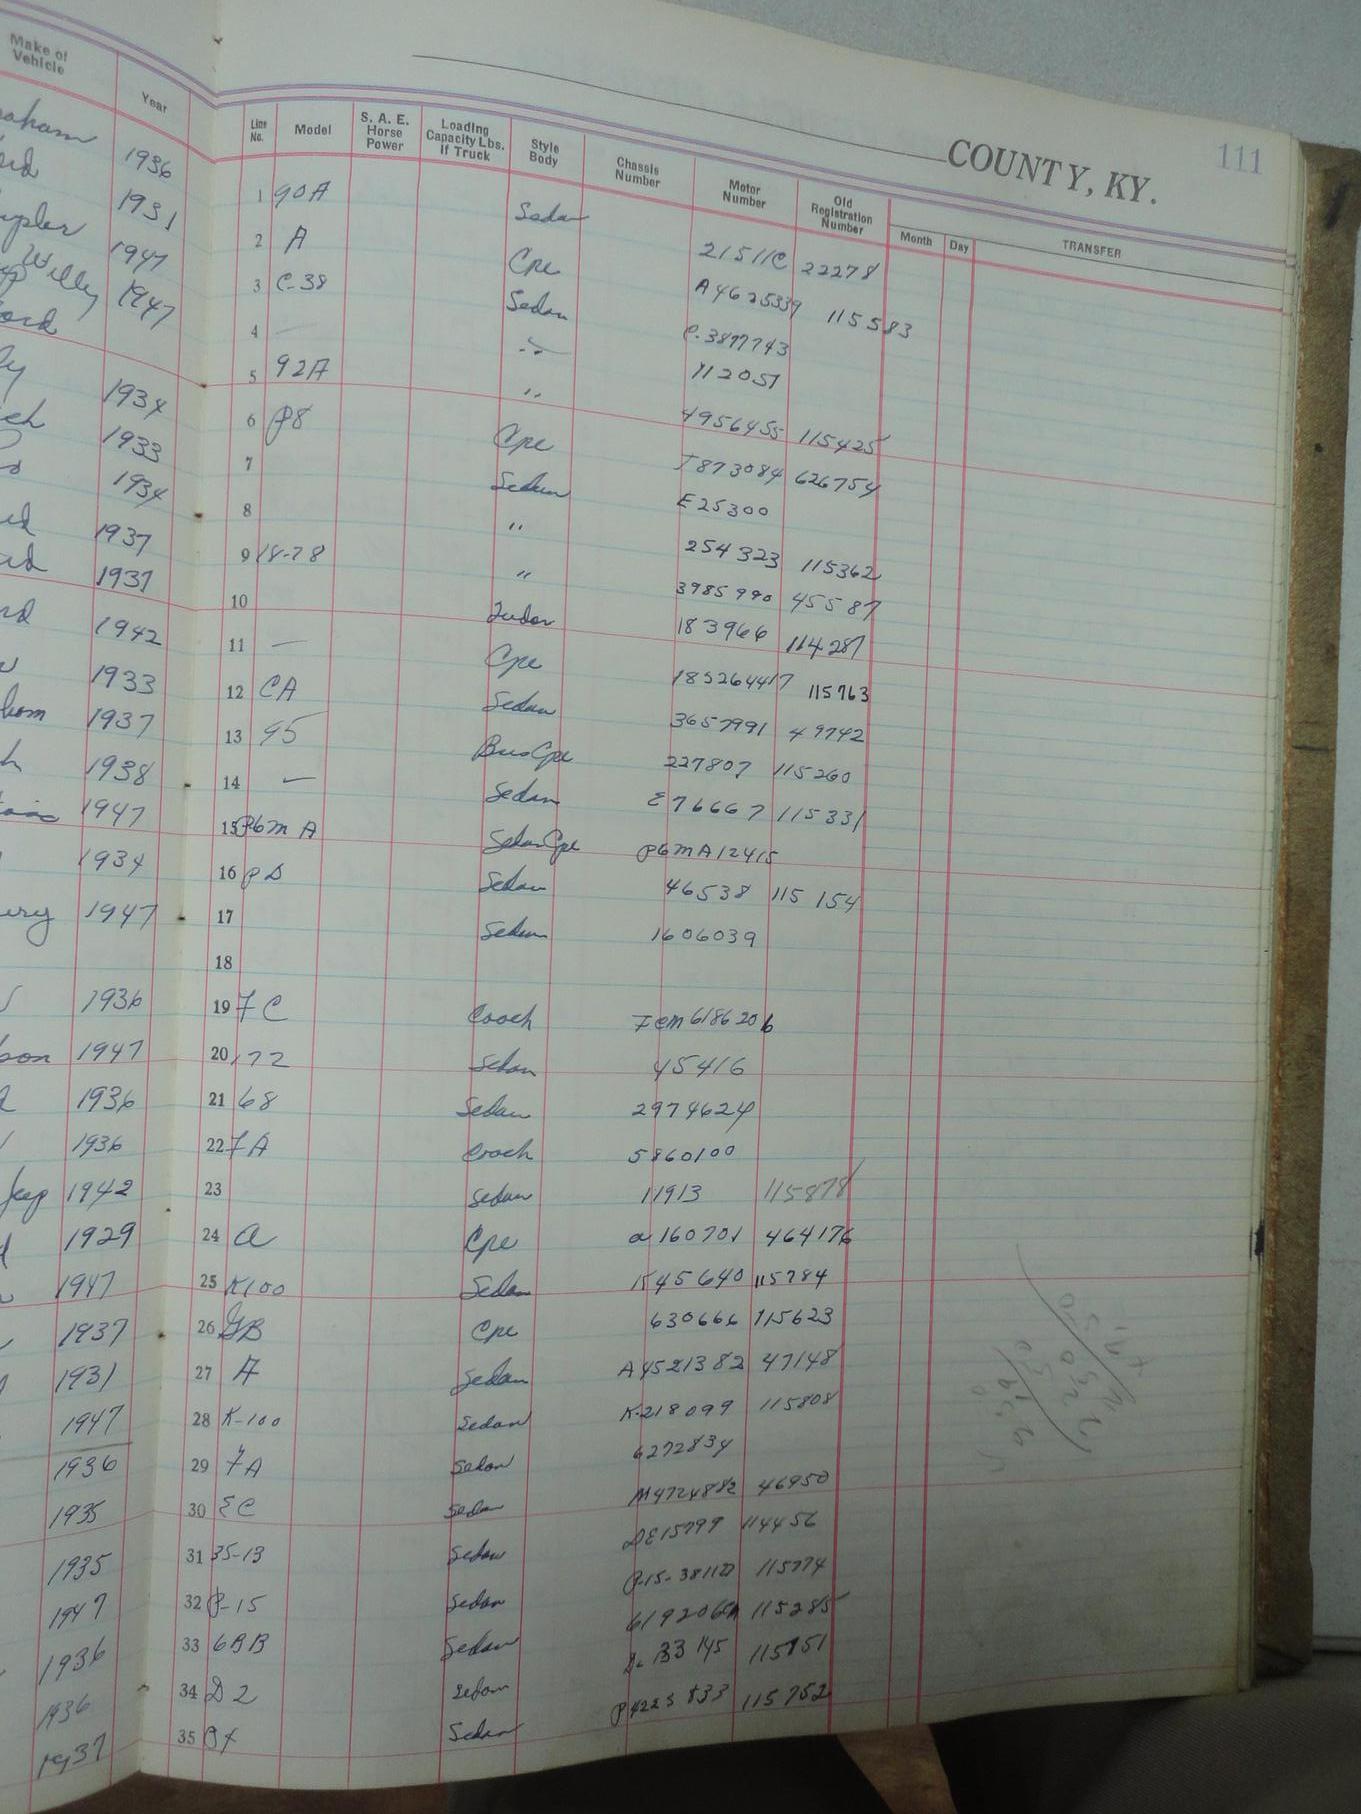 COUNTY, KY. 111
Make of Vehicle Year Line No. Model S. A. E. Horse Power Loading Capacity Lbs. If Truck Style Body Chassis Number Motor Number Old Registration Number Month Day TRANSFER
1936 1 90A Sedan 21511C 22278
1931 2 A Cpe A4625339 115583
1947 3 C-38 Sedan C-3877743
Willy 1947 4 — " 112057
5 92A " 4956455 115425
1934 6 P8 Cpe J873084 626754
1933 7 Sedan E25300
1934 8 " 254323 115362
1937 9 18-78 " 3985990 45587
1937 10 Tudor 183966 114287
1942 11 — Cpe 185264417 115763
1933 12 CA Sedan 3657991 49742
1937 13 95 Bus Cpe 227807 115260
1938 14 — Sedan E76667 115331
1947 15 P6mA Sedan Cpe P6mA12415
1934 16 PD Sedan 46538 115154
1947 17 Sedan 1606039
18
1936 19 7C Coach 7cm618620b
1947 20 172 Sedan 45416
1936 21 68 Sedan 2974624
1936 22 7A Coach 5860100
Jeep 1942 23 Sedan 11913 115878
1929 24 a Cpe a160701 464176
1947 25 K100 Sedan K45640 115784
1937 26 GB Cpe 630666 115623
1931 27 A Sedan A4521382 47148
1947 28 K-100 Sedan K-218099 115808
1936 29 7A Sedan 6272834
1935 30 EC Sedan M4724882 46950
1935 31 35-13 Sedan DE15799 114456
1947 32 P-15 Sedan 115774
1936 33 6BB Sedan 115285
1936 34 D2 Sedan 33145 115151
1937 35 Sedan 115752